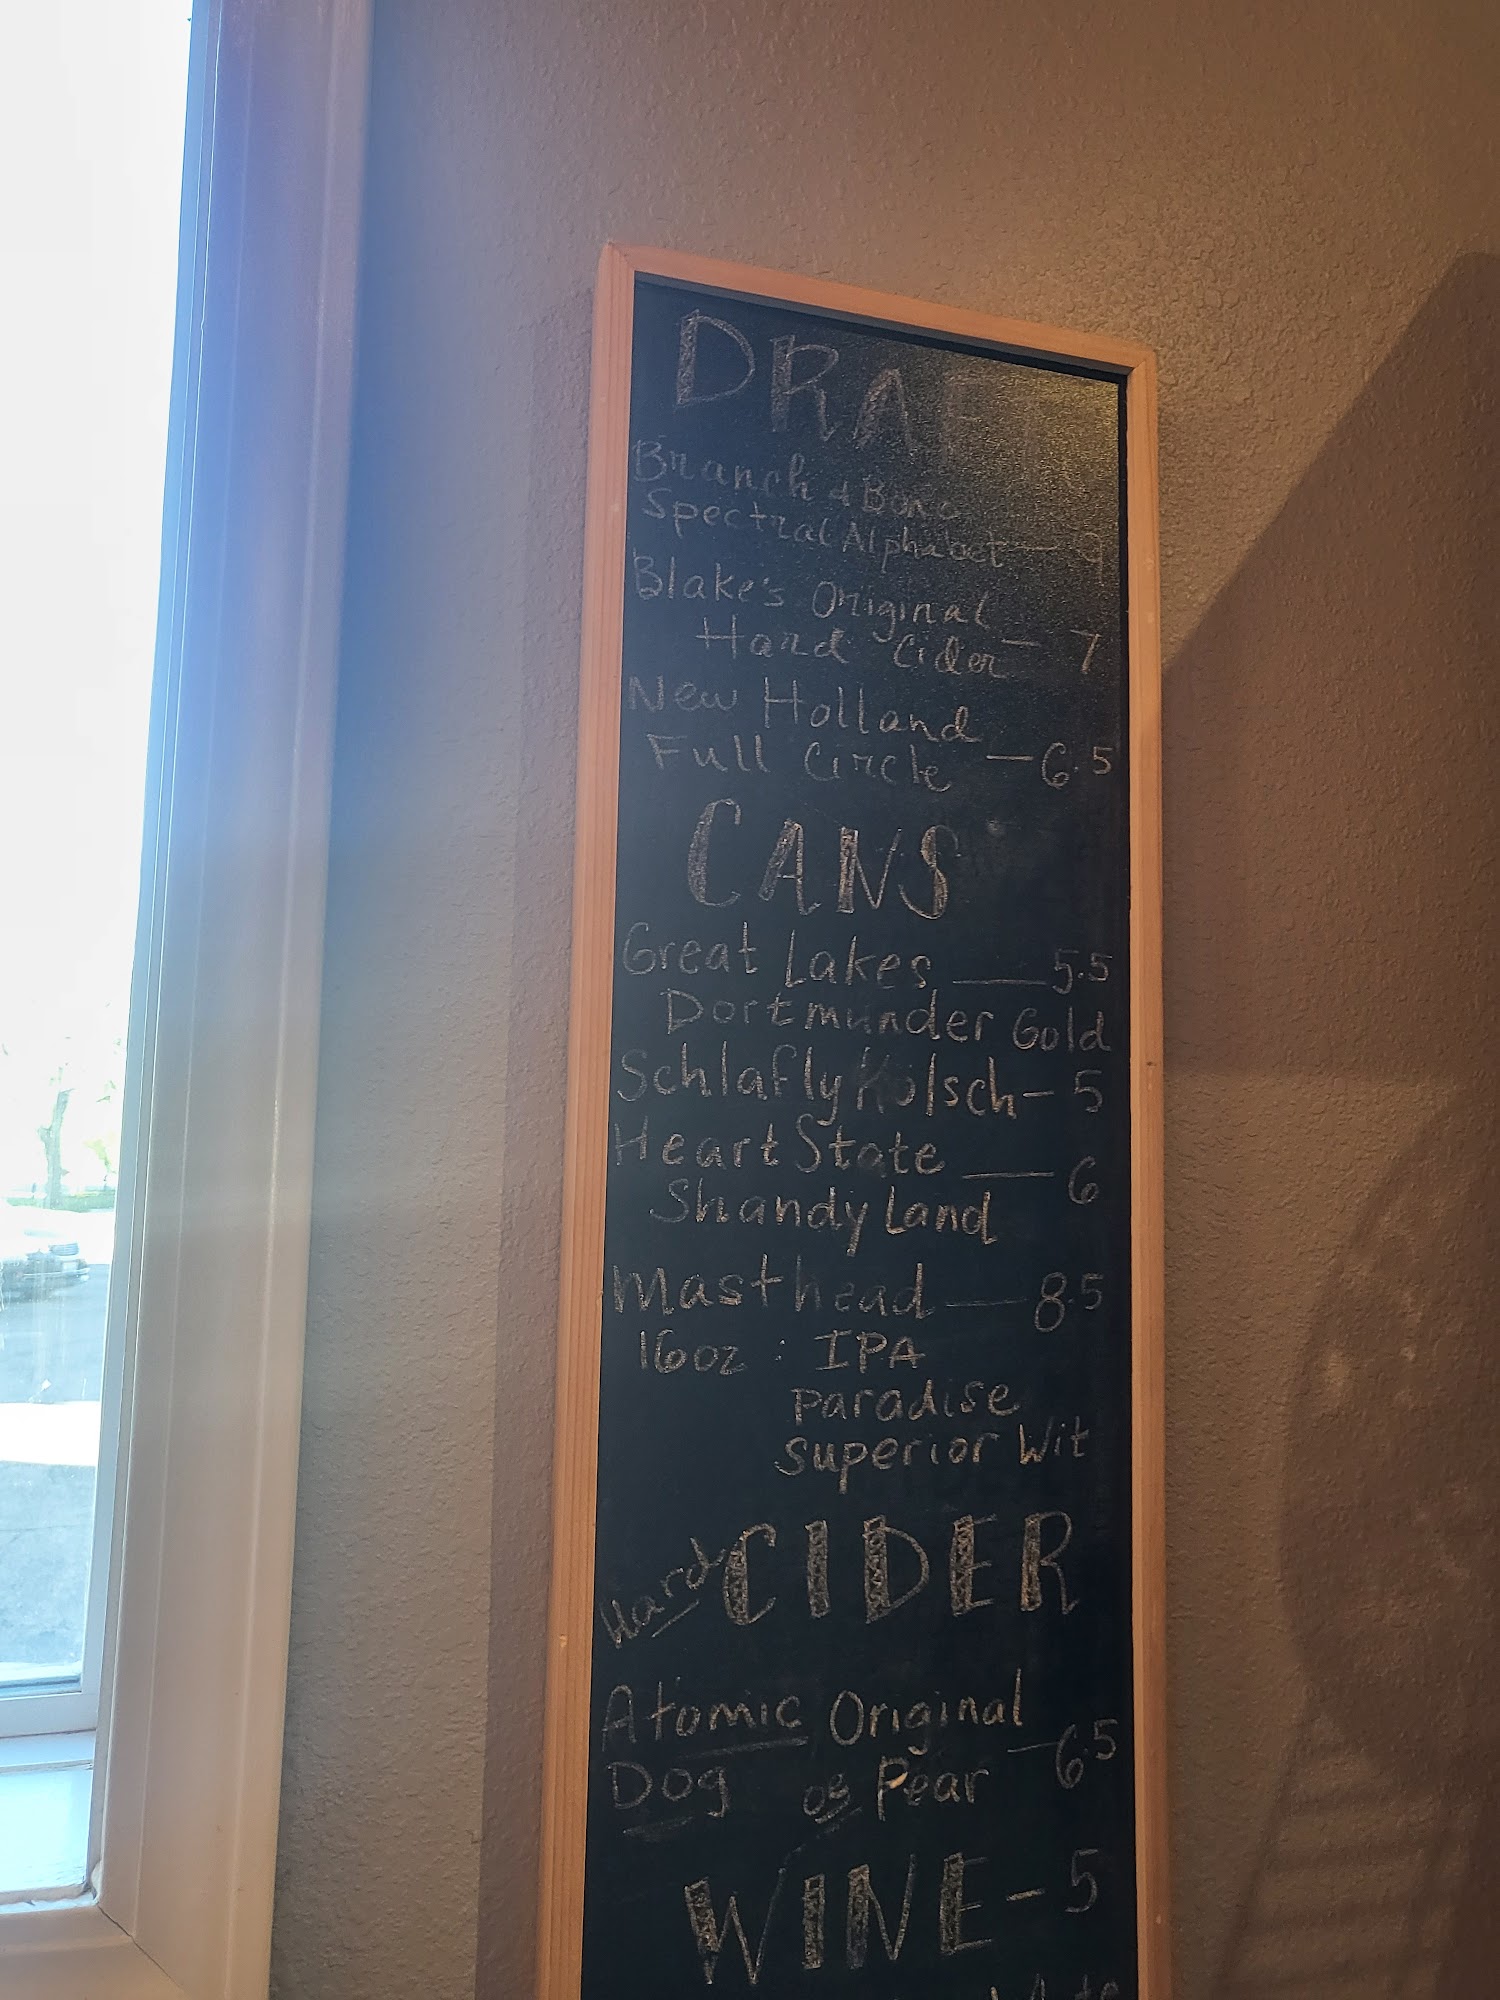 DRAFT
Branch & Bone
Spectral Alphabet — 9
Blake's Original
Hard Cider — 7
New Holland
Full Circle — 6.5
CANS
Great Lakes ___ 5.5
Dortmunder Gold
Schlafly Kölsch — 5
Heart State ___ 6
Shandy Land
Masthead — 8.5
16oz : IPA
Paradise
Superior Wit
Hard CIDER
Atomic Original
Dog or Pear — 6.5
WINE - 5